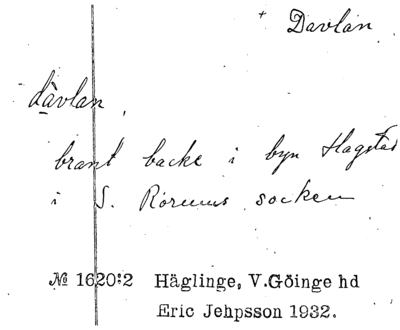 + Davlan
dàvlan,
brant backe i byn Hagstad
i S. Rörums socken
№ 1620:2 Häglinge, V.Göinge hd
Eric Jehpsson 1932.